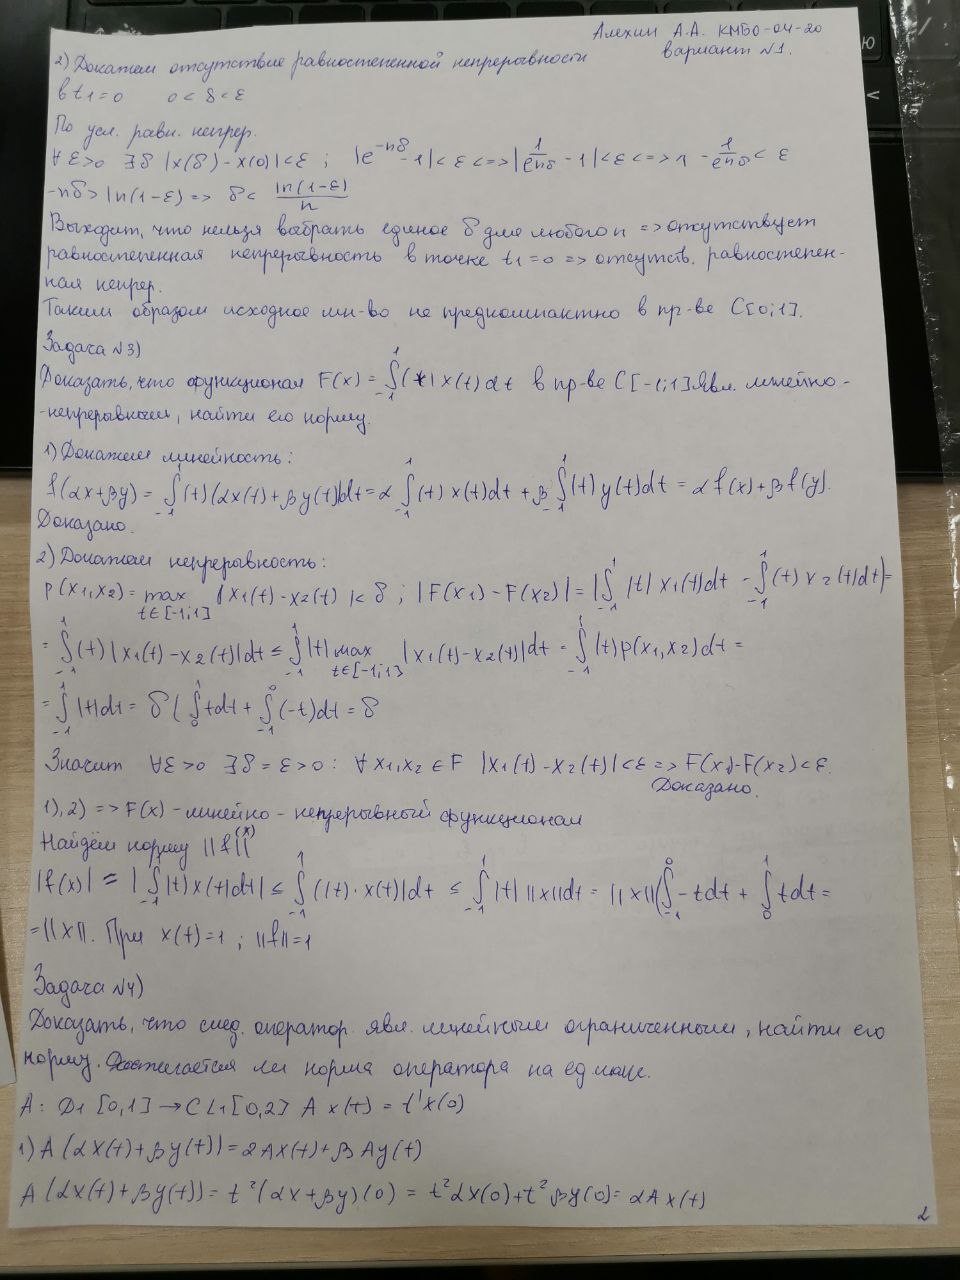 Алехин А.А. КМБО-04-20
вариант №1.
2) Докажем отсутствие равностепенной непрерывности
в t1=0 0 < δ < ε
По усл. равн. непрер.
∀ ε>0 ∃ δ |x(δ)-x(0)|<ε ; |e^{-nδ} - 1| < ε <=> |1/e^{nδ} - 1| < ε <=> 1 - 1/e^{nδ} < ε
-nδ > ln(1-ε) => δ < ln(1-ε)/n
Выходит, что нельзя выбрать единое δ для любого n => отсутствует
равностепенная непрерывность в точке t1=0 => отсутств. равностепен-
ная непрер.
Таким образом исходное мн-во не предкомпактно в пр-ве C[0;1].
Задача №3)
Доказать, что функционал F(x) = ∫_{-1}^{1} |t| x(t) dt в пр-ве C[-1;1] явл. линейно-
-непрерывным, найти его норму.
1) Докажем линейность:
f(αx+βy) = ∫_{-1}^{1} (t)(αx(t)+βy(t))dt = α ∫_{-1}^{1} (t) x(t)dt + β ∫_{-1}^{1} (t) y(t)dt = α f(x)+β f(y).
Доказано.
2) Докажем непрерывность:
ρ(x1,x2) = max_{t∈[-1;1]} |x1(t)-x2(t)| < δ ; |F(x1) - F(x2)| = |∫_{-1}^{1} |t| x1(t)dt - ∫_{-1}^{1} (t) x2(t)dt| =
= ∫_{-1}^{1} (t) |x1(t)-x2(t)|dt ≤ ∫_{-1}^{1} |t| max_{t∈[-1;1]} |x1(t)-x2(t)|dt = ∫_{-1}^{1} (t) ρ(x1,x2)dt =
= ∫_{-1}^{1} |t|dt = δ ( ∫_{0}^{1} tdt + ∫_{-1}^{0} (-t)dt = δ
Значит ∀ε>0 ∃ δ = ε>0 : ∀ x1,x2 ∈ F |x1(t)-x2(t)|<ε => F(x1)-F(x2)<ε.
Доказано.
1), 2) => F(x) - линейно - непрерывный функционал
Найдём норму ||f(x)||
|f(x)| = | ∫_{-1}^{1} |t| x(t)dt | ≤ ∫_{-1}^{1} |(t)·x(t)|dt ≤ ∫_{-1}^{1} |t| ||x||dt = ||x||( ∫_{-1}^{0} -tdt + ∫_{0}^{1} tdt =
= ||x||. При x(t)=1 ; ||f||=1
Задача №4)
Доказать, что след. оператор. явл. линейным ограниченным, найти его
норму. Достигается ли норма оператора на ед.
A: D1 [0,1] → CL1[0,2] A x(t) = t¹x(0)
1) A (αx(t)+βy(t)) = αAx(t)+βAy(t)
A (αx(t)+βy(t)) = t²(αx+βy)(0) = t²αx(0)+t²βy(0) = αAx(t)
2
ю
<